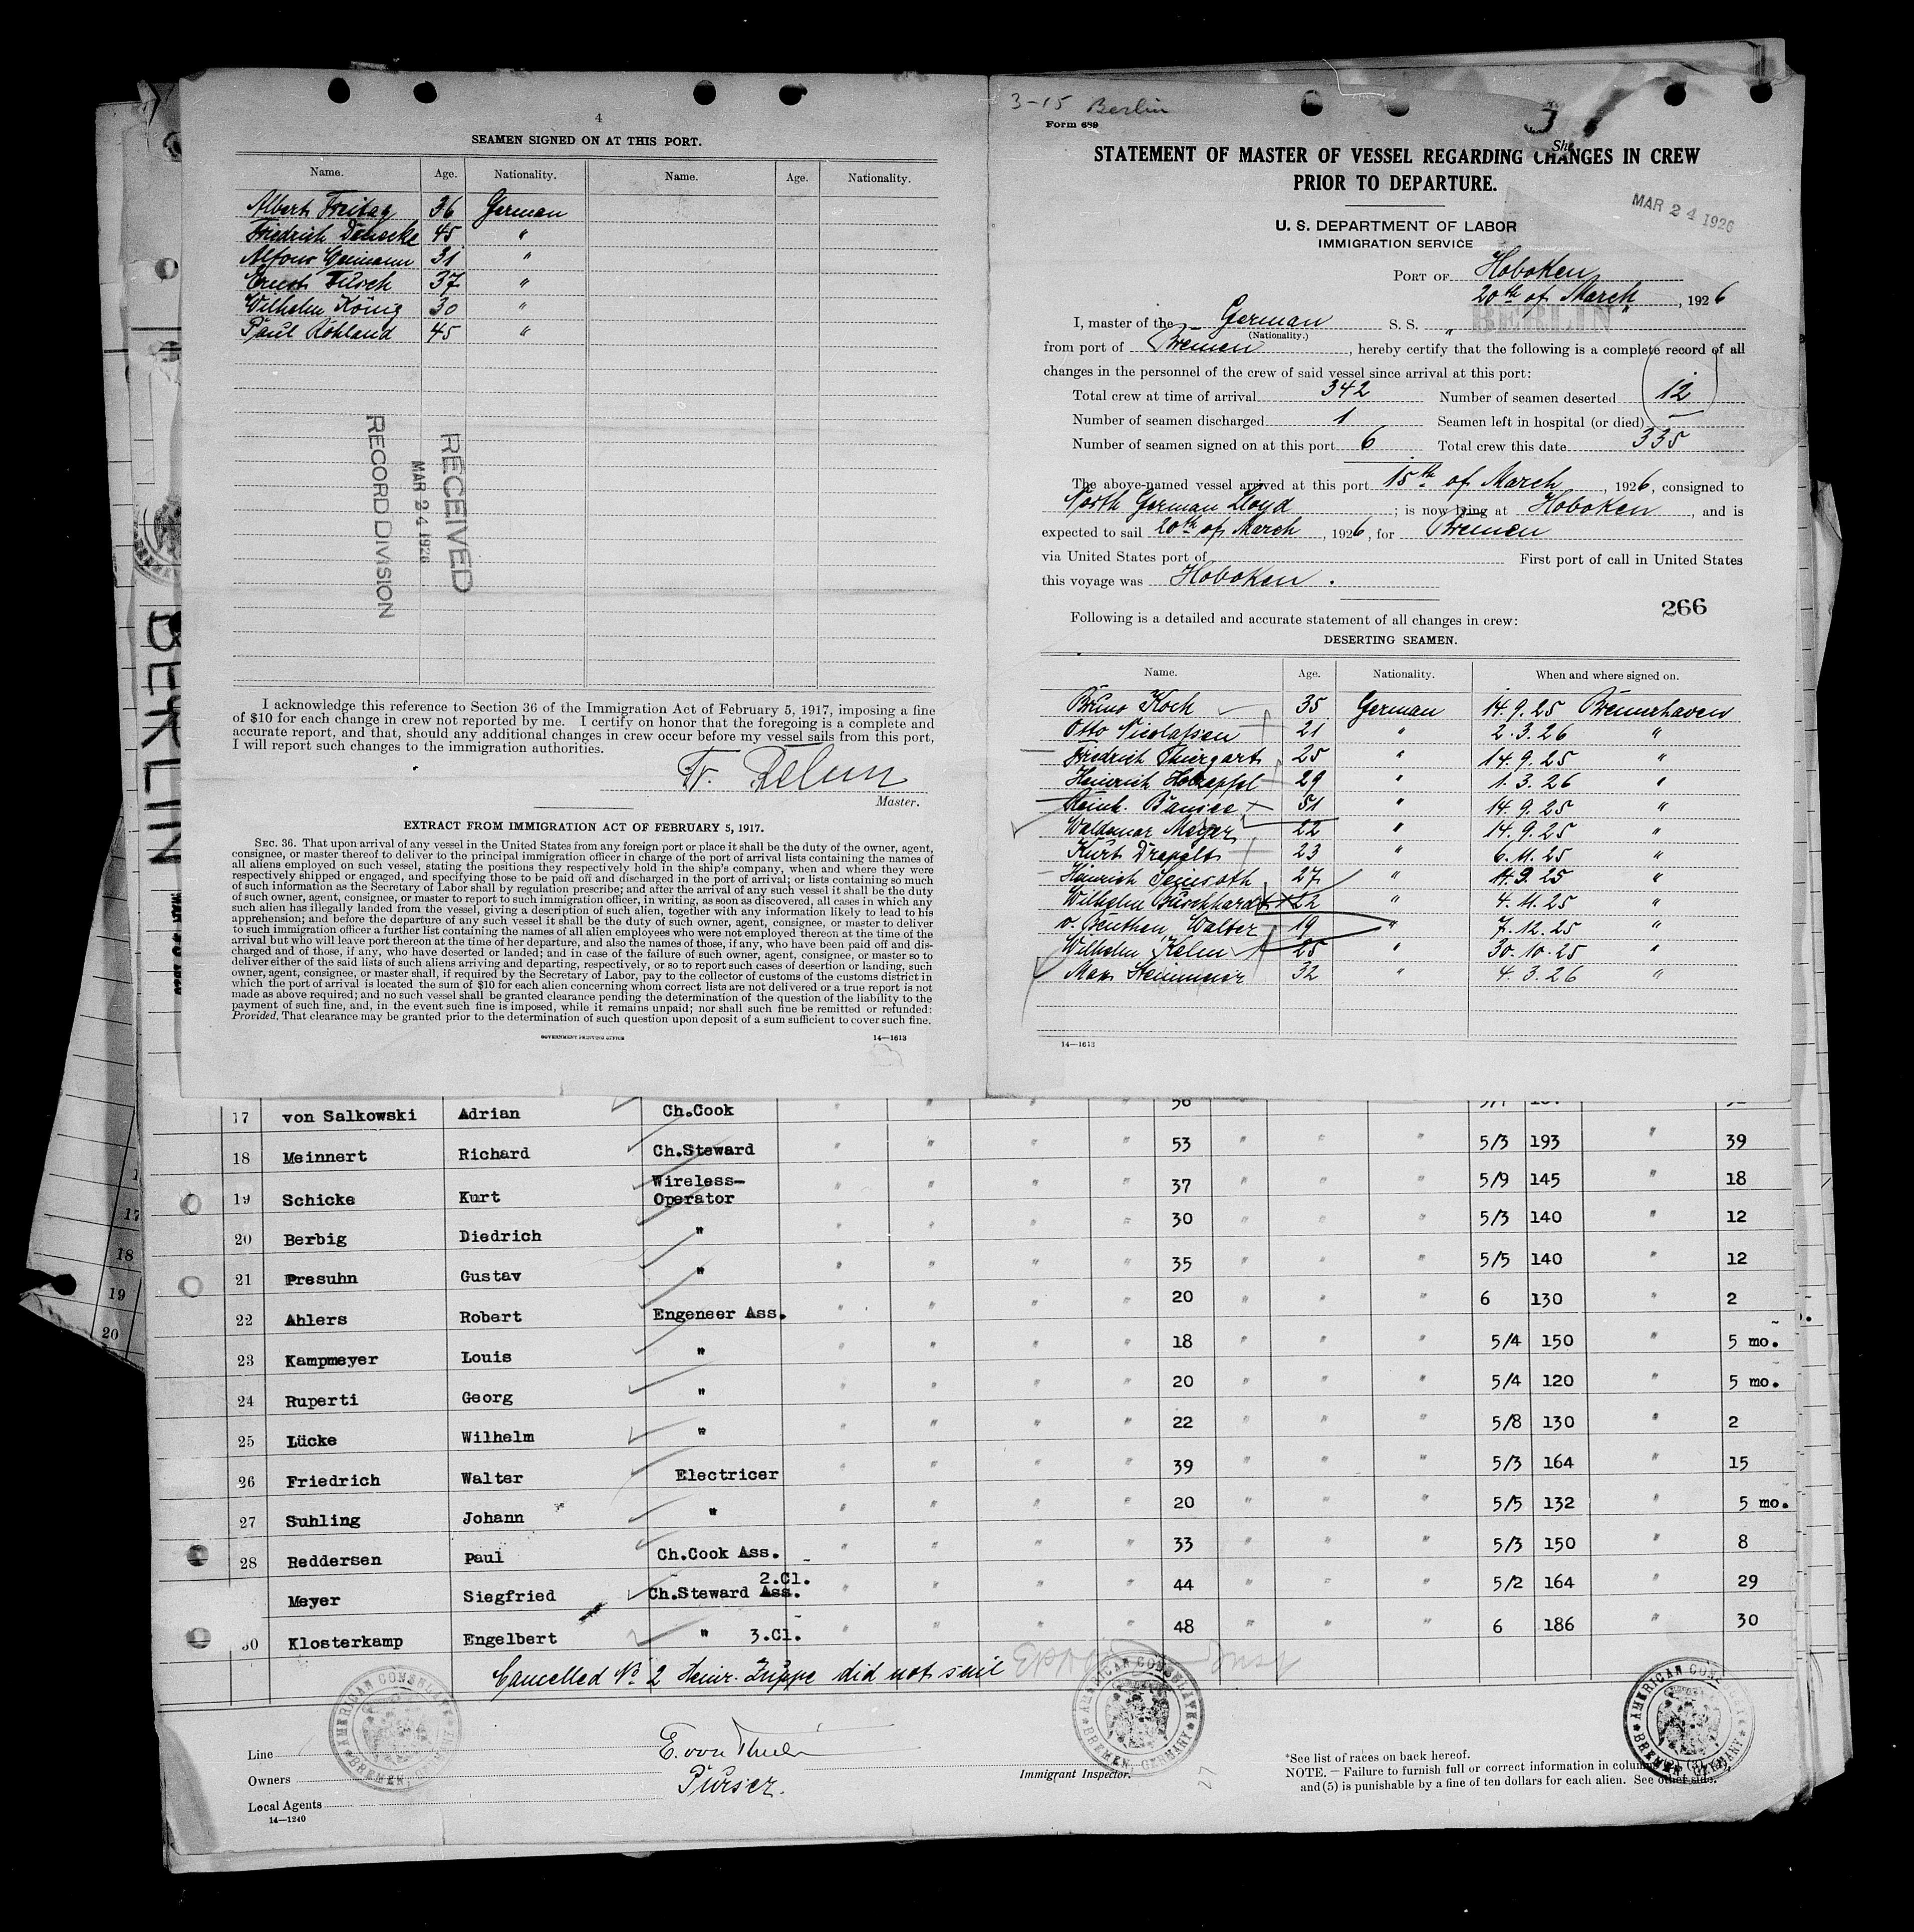 4
SEAMEN SIGNED ON AT THIS PORT.
Name. Age. Nationality. Name. Age. Nationality.
Albert Freitag 36 German
Friedrich 45 "
Alfons 31 "
Ernst 37 "
Wilhelm König 30 "
Paul Röhland 45 "
RECEIVED
MAR 24 1926
RECORD DIVISION
I acknowledge this reference to Section 36 of the Immigration Act of February 5, 1917, imposing a fine
of $10 for each change in crew not reported by me. I certify on honor that the foregoing is a complete and
accurate report, and that, should any additional changes in crew occur before my vessel sails from this port,
I will report such changes to the immigration authorities.
Master.
EXTRACT FROM IMMIGRATION ACT OF FEBRUARY 5, 1917.
SEC. 36. That upon arrival of any vessel in the United States from any foreign port or place it shall be the duty of the owner, agent,
consignee, or master thereof to deliver to the principal immigration officer in charge of the port of arrival lists containing the names of
all aliens employed on such vessel, stating the positions they respectively hold in the ship's company, when and where they were
respectively shipped or engaged, and specifying those to be paid off and discharged in the port of arrival; or lists containing so much
of such information as the Secretary of Labor shall by regulation prescribe; and after the arrival of any such vessel it shall be the duty
of such owner, agent, consignee, or master to report to such immigration officer, in writing, as soon as discovered, all cases in which any
such alien has illegally landed from the vessel, giving a description of such alien, together with any information likely to lead to his
apprehension; and before the departure of any such vessel it shall be the duty of such owner, agent, consignee, or master to deliver
to such immigration officer a further list containing the names of all alien employees who were not employed thereon at the time of the
arrival but who will leave port thereon at the time of her departure, and also the names of those, if any, who have been paid off and dis-
charged and of those, if any, who have deserted or landed; and in case of the failure of such owner, agent, consignee, or master so to
deliver either of the said lists of such aliens arriving and departing, respectively, or so to report such cases of desertion or landing, such
owner, agent, consignee, or master shall, if required by the Secretary of Labor, pay to the collector of customs of the customs district in
which the port of arrival is located the sum of $10 for each alien concerning whom correct lists are not delivered or a true report is not
made as above required; and no such vessel shall be granted clearance pending the determination of the question of the liability to the
payment of such fine, and, in the event such fine is imposed, while it remains unpaid; nor shall such fine be remitted or refunded:
Provided, That clearance may be granted prior to the determination of such question upon deposit of a sum sufficient to cover such fine.
GOVERNMENT PRINTING OFFICE 14—1613
3-15 Berlin
Form 689
STATEMENT OF MASTER OF VESSEL REGARDING CHANGES IN CREW
PRIOR TO DEPARTURE.
MAR 24 1926
U. S. DEPARTMENT OF LABOR
IMMIGRATION SERVICE
PORT OF Hoboken
20th of March, 1926
I, master of the German S. S. "BERLIN"
(Nationality.)
from port of Bremen, hereby certify that the following is a complete record of all
changes in the personnel of the crew of said vessel since arrival at this port:
Total crew at time of arrival 342 Number of seamen deserted 12
Number of seamen discharged 1 Seamen left in hospital (or died) —
Number of seamen signed on at this port 6 Total crew this date 335
The above-named vessel arrived at this port 15th of March, 1926, consigned to
North German Lloyd; is now lying at Hoboken, and is
expected to sail 20th of March, 1926, for Bremen
via United States port of First port of call in United States
this voyage was Hoboken.
266
Following is a detailed and accurate statement of all changes in crew:
DESERTING SEAMEN.
Name. Age. Nationality. When and where signed on.
Bruno Koch 35 German 14.9.25 Bremerhaven
Otto Nicolassen 21 " 2.3.26 "
Friedrich Thiergart 25 " 14.9.25 "
Heinrich Holzapfel 29 " 1.3.26 "
Reinh. Bansee 51 " 14.9.25 "
Waldemar Meyer 22 " 14.9.25 "
Kurt 23 " 6.11.25 "
Heinrich 27 " 14.9.25 "
Wilhelm Burchhardt 22 " 4.11.25 "
v. Benthen, Walter 19 " 7.12.25 "
Wilhelm Kelm 25 " 30.10.25 "
Max 32 " 4.3.26 "
14—1613
BERLIN
17 von Salkowski Adrian Ch.Cook " " " " 56
18 Meinnert Richard Ch.Steward " " " " 53 " " " 5/3 193 " 39
19 Schicke Kurt Wireless-Operator " " " " 37 " " " 5/9 145 " 18
20 Berbig Diedrich " " " " " 30 " " " 5/3 140 " 12
21 Presuhn Gustav " " " " " 35 " " " 5/5 140 " 12
22 Ahlers Robert Engeneer Ass. " " " " 20 " " " 6 130 " 2
23 Kampmeyer Louis " " " " " 18 " " " 5/4 150 " 5 mo.
24 Ruperti Georg " " " " " 20 " " " 5/4 120 " 5 mo.
25 Lücke Wilhelm " " " " " 22 " " " 5/8 130 " 2
26 Friedrich Walter Electricer " " " " 39 " " " 5/3 164 " 15
27 Suhling Johann " " " " " 20 " " " 5/5 132 " 5 mo.
28 Reddersen Paul Ch.Cook Ass. " " " " 33 " " " 5/3 150 " 8
Meyer Siegfried Ch.Steward Ass. 2.Cl. " " " " 44 " " " 5/2 164 " 29
30 Klosterkamp Engelbert " 3.Cl. " " " " 48 " " " 6 186 " 30
Cancelled No 2 Heinr. did not sail
AMERICAN CONSULATE BREMEN, GERMANY
AMERICAN CONSULATE BREMEN, GERMANY
AMERICAN CONSULATE BREMEN, GERMANY
Line
Owners
Local Agents
14—1240
E. von
Purser.
Immigrant Inspector.
27
*See list of races on back hereof.
NOTE.—Failure to furnish full or correct information in columns
and (5) is punishable by a fine of ten dollars for each alien. See other side.
17
18
19
20